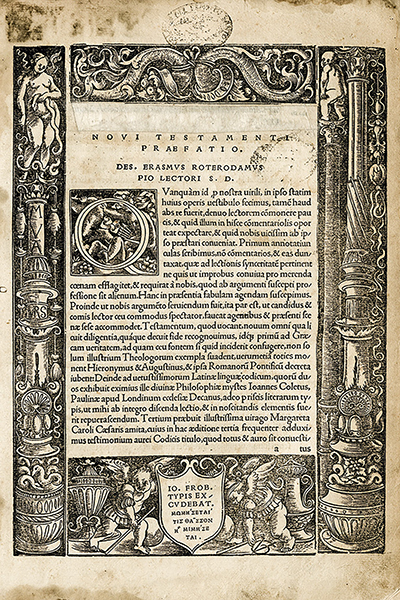 NOVI TESTAMENTI
PRAEFATIO.
DES. ERASMVS ROTERODAMVS
PIO LECTORI S. D.
QVanquàm id ꝓ nostra virili, in ipso statim
huius operis uestibulo fecimus, tamē haud
abs re fuerit, denuo lectorem cōmonere pau
cis, & quid illum in hisce cōmentariolis opor
teat expectare, & quid nobis uicissim ab ip/
so præstari conueniat. Primum annotatiun
culas scribimus, nō cōmentarios, & eas dun/
taxat, quæ ad lectionis synceritatē pertinent
ne quis ut improbus conuiua pro merenda
cœnam efflagitet, & requirat à nobis, quod ab argumenti suscepti pro/
fessione sit alienum. Hanc in præsentia fabulam agendam suscepimus.
Proinde ut nobis argumēto seruiendum fuit, ita par est, ut candidus &
comis lector ceu commodus spectator, faueat agentibus & præsenti sce
næ sese accommodet. Testamentum, quod uocant, nouum omni qua li
cuit diligentia, quaque decuit fide recognouimus, idq; primū ad Græ/
cam ueritatem, ad quam ceu fontem si quid inciderit confugere, non so
lum illustrium Theologorum exempla suadent, uerumetiā toties mo/
nent Hieronymus & Augustinus, & ipsa Romanorū Pontificū decreta
iubent: Deinde ad uetustissimorum Latinæ linguæ codicum, quorū du
os exhibuit eximius ille diuinæ Philosophiæ mystes Ioannes Coletus,
Paulinæ apud Londinum ecclesiæ Decanus, adeo priscis literarum ty/
pis, ut mihi ab integro discenda lectio, & in noscitandis elementis fue/
rit repuerascendum. Tertium præbuit illustrissima uirago Margareta
Caroli Cæsaris amita, cuius in hac æditione tertia frequenter adduxi/
mus testimonium aurei Codicis titulo, quod totus & auro sit conuesti/
a tus
IO. FROB.
TYPIS EX/
CVDEBAT.
ΜΩΜΗΣΕΤΑΙ
ΤΙΣ ΘΑΣΣΟΝ
Η ΜΙΜΗΣΕ
ΤΑΙ.